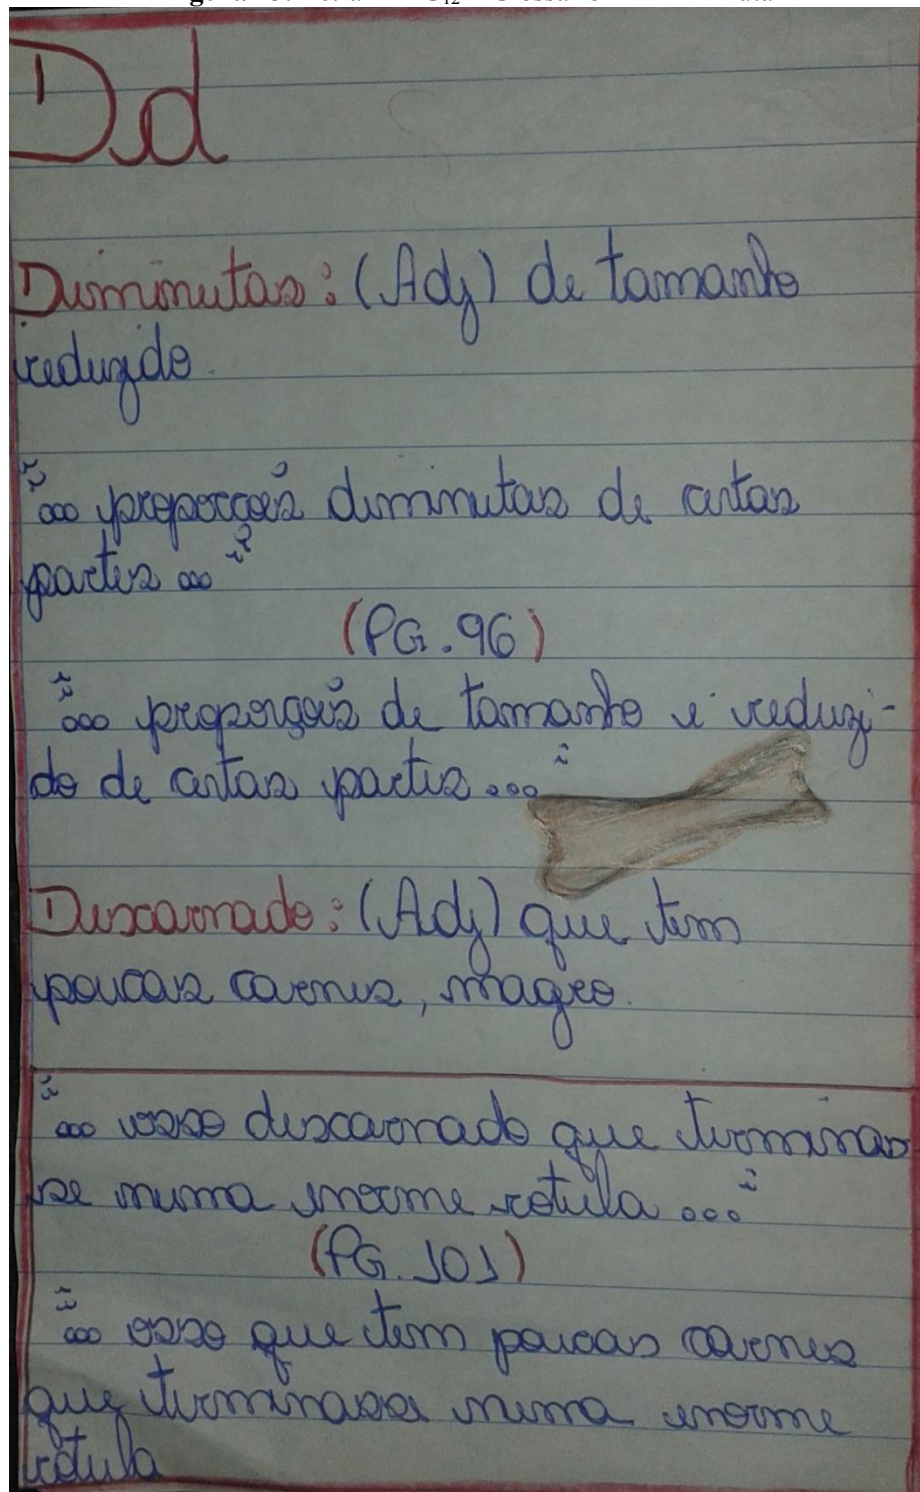 Dd
Diminutas: (Adj) de tamanho
reduzido.
"... proporções diminutas de certas
partes ..."
(PG. 96)
"... proporções de tamanho e reduzi-
do de certas partes ..."
Descarnado: (Adj) que tem
poucas carnes, magro.
"... osso descarnado que terminas
se numa enorme rótula ..."
(PG. 101)
"... osso que tem poucas carnes
que terminasse numa enorme
rótula